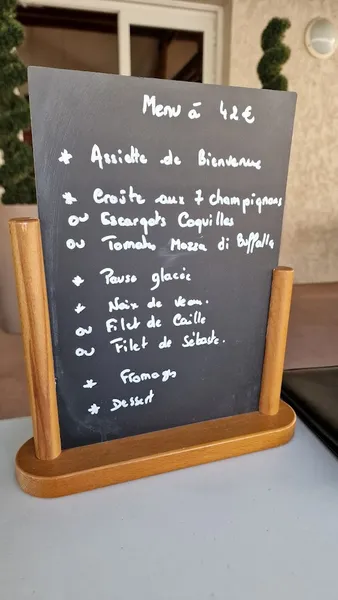 Menu à 42€
* Assiette de Bienvenue
* Croûte aux 7 champignons
ou Escargots Coquilles
ou Tomate Mozza di Buffalla
* Pause glacée
* Noix de veau.
ou Filet de Caille
ou Filet de Sébaste.
* Fromages
* Dessert